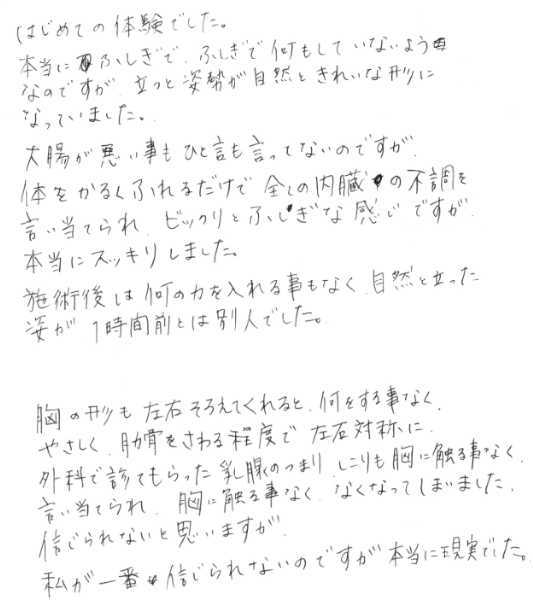 はじめての体験でした。
本当にふしぎで、ふしぎで何もしていないよう
なのですが、立つと姿勢が自然ときれいな形に
なっていました。
大腸が悪い事もひと言も言ってないのですが、
体をかるくふれるだけで全ての内臓の不調を
言い当てられ、ビックリとふしぎな感じですが、
本当にスッキリしました。
施術後は何の力を入れる事もなく、自然と立った
姿が1時間前とは別人でした。
胸の形も左右そろえてくれると、何をする事なく、
やさしく、肋骨をさわる程度で左右対称に、
外科で診てもらった乳腺のつまり、しこりも胸に触る事なく、
言い当てられ、胸に触る事なく、なくなってしまいました。
信じられないと思いますが、
私が一番信じられないのですが本当に現実でした。